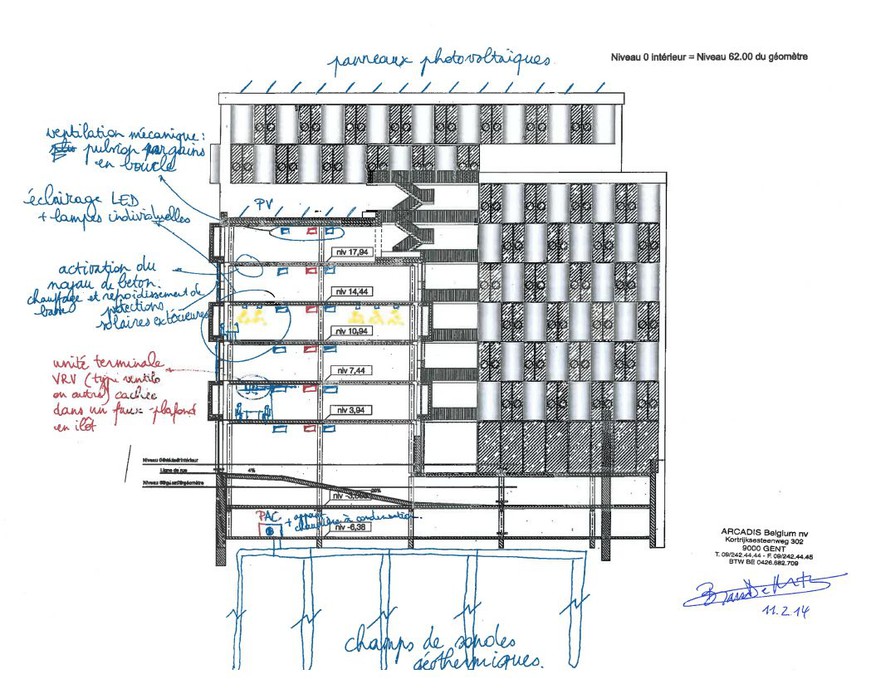 panneaux photovoltaïques
Niveau 0 intérieur = Niveau 62.00 du géomètre
ventilation mécanique:
pulsion par gains
en boucle
éclairage LED
+ lampes individuelles
PV
niv 17,94
activation du
noyau de béton.
chauffage et refroidissement de
base
protections
solaires extérieures
niv 14,44
niv 10,94
unité terminale
VRV (type ventilo
ou autre) cachée
dans un faux-plafond
en îlot
niv 7,44
niv 3,94
Ligne de rue
4%
niv -6,38
PAC
+ appoint
chaudière à condensation.
ARCADIS Belgium nv
Kortrijksesteenweg 302
9000 GENT
T. 09/242.44.44 - F. 09/242.44.45
BTW BE 0426.682.709
11.2.14
champs de sondes
géothermiques.